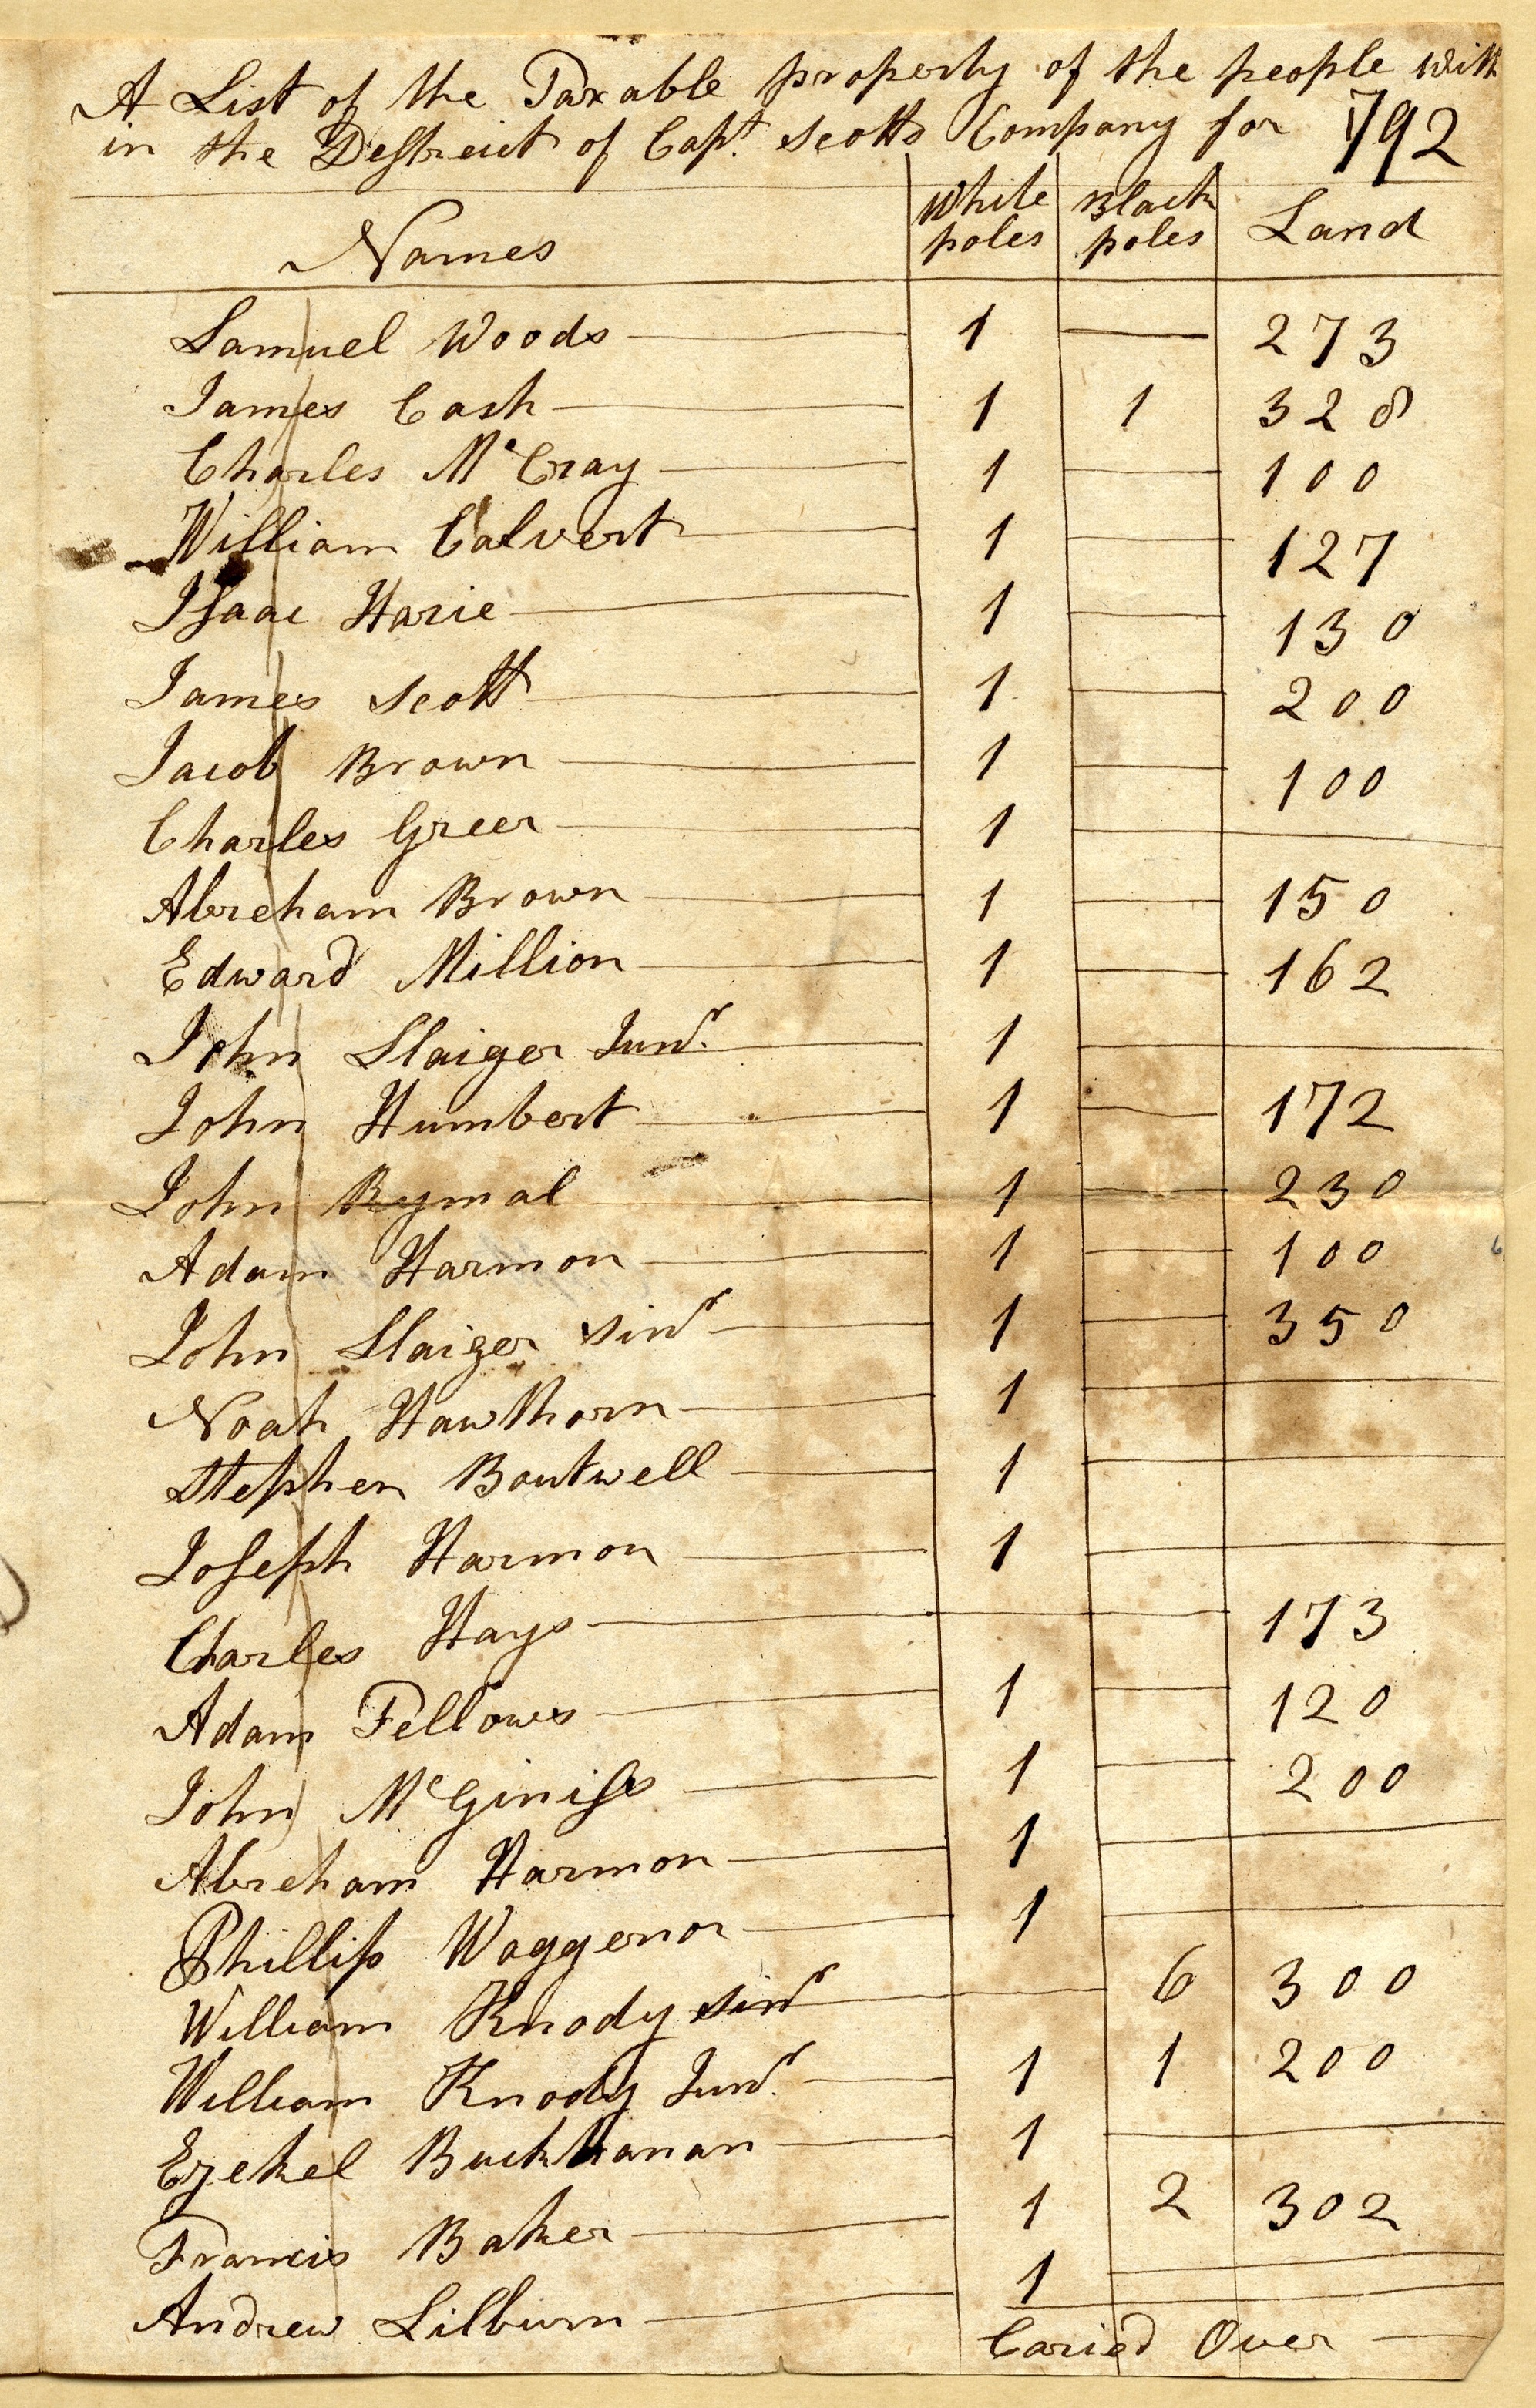 A List of the Taxable property of the people with
in the Destreict of Capt. Scotts Company for 1792
Names White poles Black poles Land
Samuel Woods 1 — 273
James Cash 1 1 328
Charles McCray 1 — 100
William Calvert 1 — 127
Isaac Harie 1 — 130
James Scott 1 — 200
Jacob Brown 1 — 100
Charles Greer 1 —
Abreham Brown 1 — 150
Edward Million 1 — 162
John Slaiger Junr. 1 —
John Humbert 1 — 172
John Rymal 1 — 230
Adam Harmon 1 — 100
John Slaiger sinr 1 — 350
Noah Hawthorn 1 —
Stephen Boutwell 1 —
Joseph Harmon 1 —
Charles Hays — 173
Adam Fellows 1 — 120
John McGiniss 1 — 200
Abreham Harmon 1 —
Phillip Waggenor 1 —
William Knody sinr — 6 300
William Knody Junr. 1 1 200
Ezekel Buckhanan 1 —
Francis Baker 1 2 302
Andrew Lilburn 1 —
Caried Over —